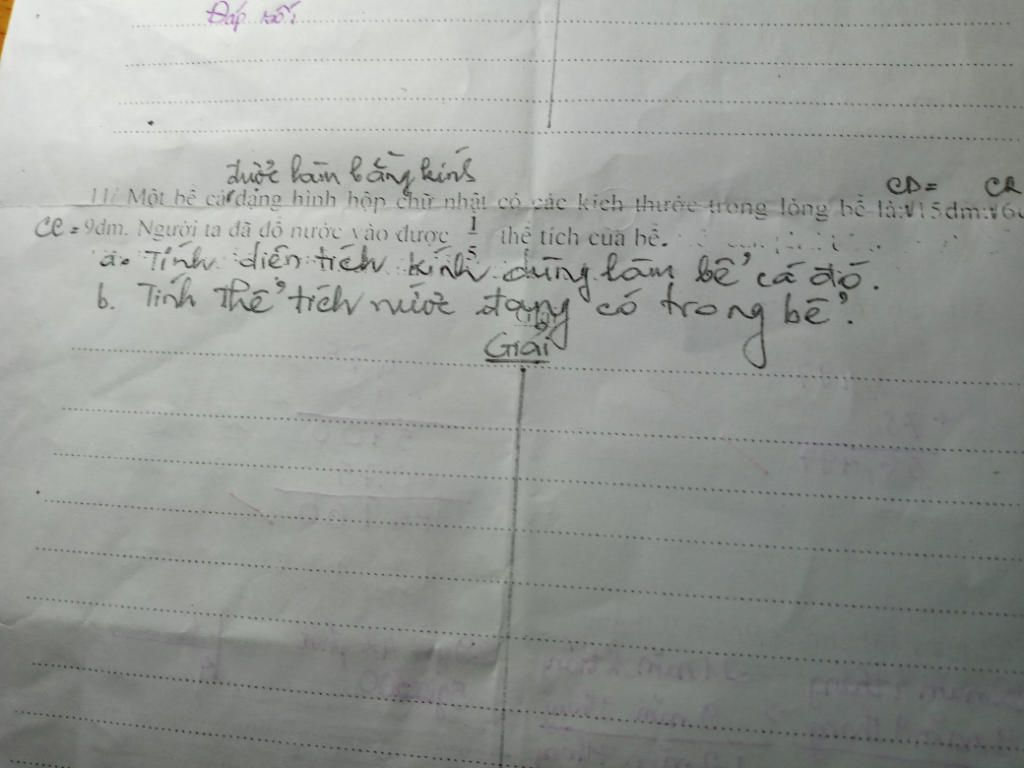 Đáp số:
được làm bằng kính
CD= CR
11/ Một bể cá dạng hình hộp chữ nhật có các kích thước trong lòng bể là: 15dm; 6
CC = 9dm. Người ta đã đổ nước vào được 1/5 thể tích của bể.
a. Tính diện tích kính dùng làm bể cá đó.
b. Tính thể tích nước đang có trong bể.
Giải